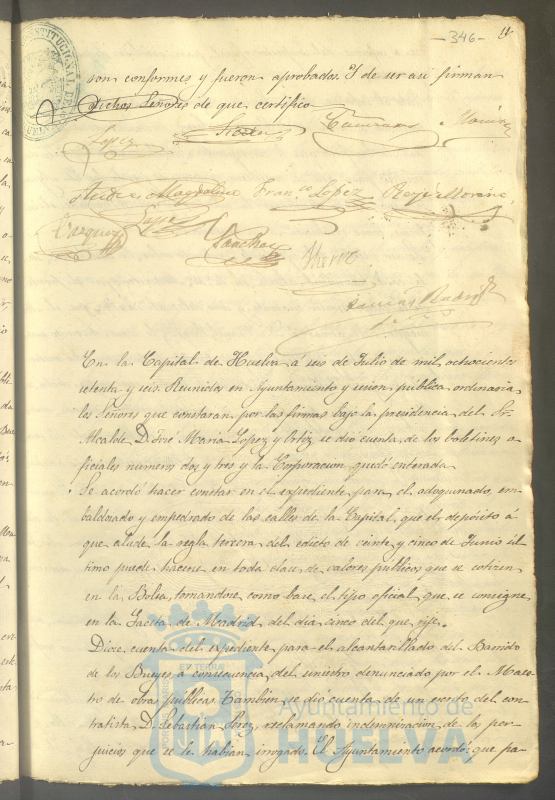 -346-
son conformes y fueron aprobadas. Y de ser asi firman
dichos Señores de que certifico
Lopez
Franco Lopez
Vazquez
Sanchez
En la Capital de Huelva á seis de Julio de mil ochocientos
setenta y seis Reunidos en Ayuntamiento y sesion pública ordinaria
los Señores que constaran por las firmas bajo la presidencia del Sr
Alcalde D. José Maria Lopez y Ortiz se dió cuenta de los boletines o-
ficiales numeros dos y tres y la Corporacion quedó enterada
Se acordó hacer constar en el expediente para el adoquinado, em-
baldosado y empedrado de las calles de la Capital, que el depósito á
que alude la regla tercera del edicto de veinte y cinco de Junio úl
timo puede hacerse en toda clase de valores publicos que se coticen
en la Bolsa, tomandose como base el tipo oficial que se consigne
en la Gaceta de Madrid del dia cinco del que rije.
Diose cuenta del expediente para el alcantarillado del Barrido
de los Bueyes á consecuencia del siniestro denunciado por el Maes
tro de obras públicas. Tambien se dió cuenta de un escrito del con-
tratista D. Sebastian reclamando indemnizacion de los per-
juicios que se le habian irrogado. El Ayuntamiento acordó: que pa-
Ayuntamiento de
HUELVA